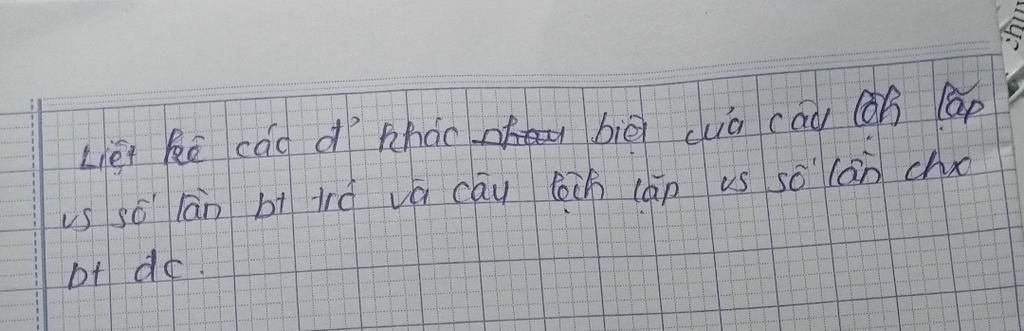 Liệt kê các đ' khác nhau biệt của câu lệh lặp
vs số lần bt trc và câu lệch lặp vs số lần chx
bt dc.